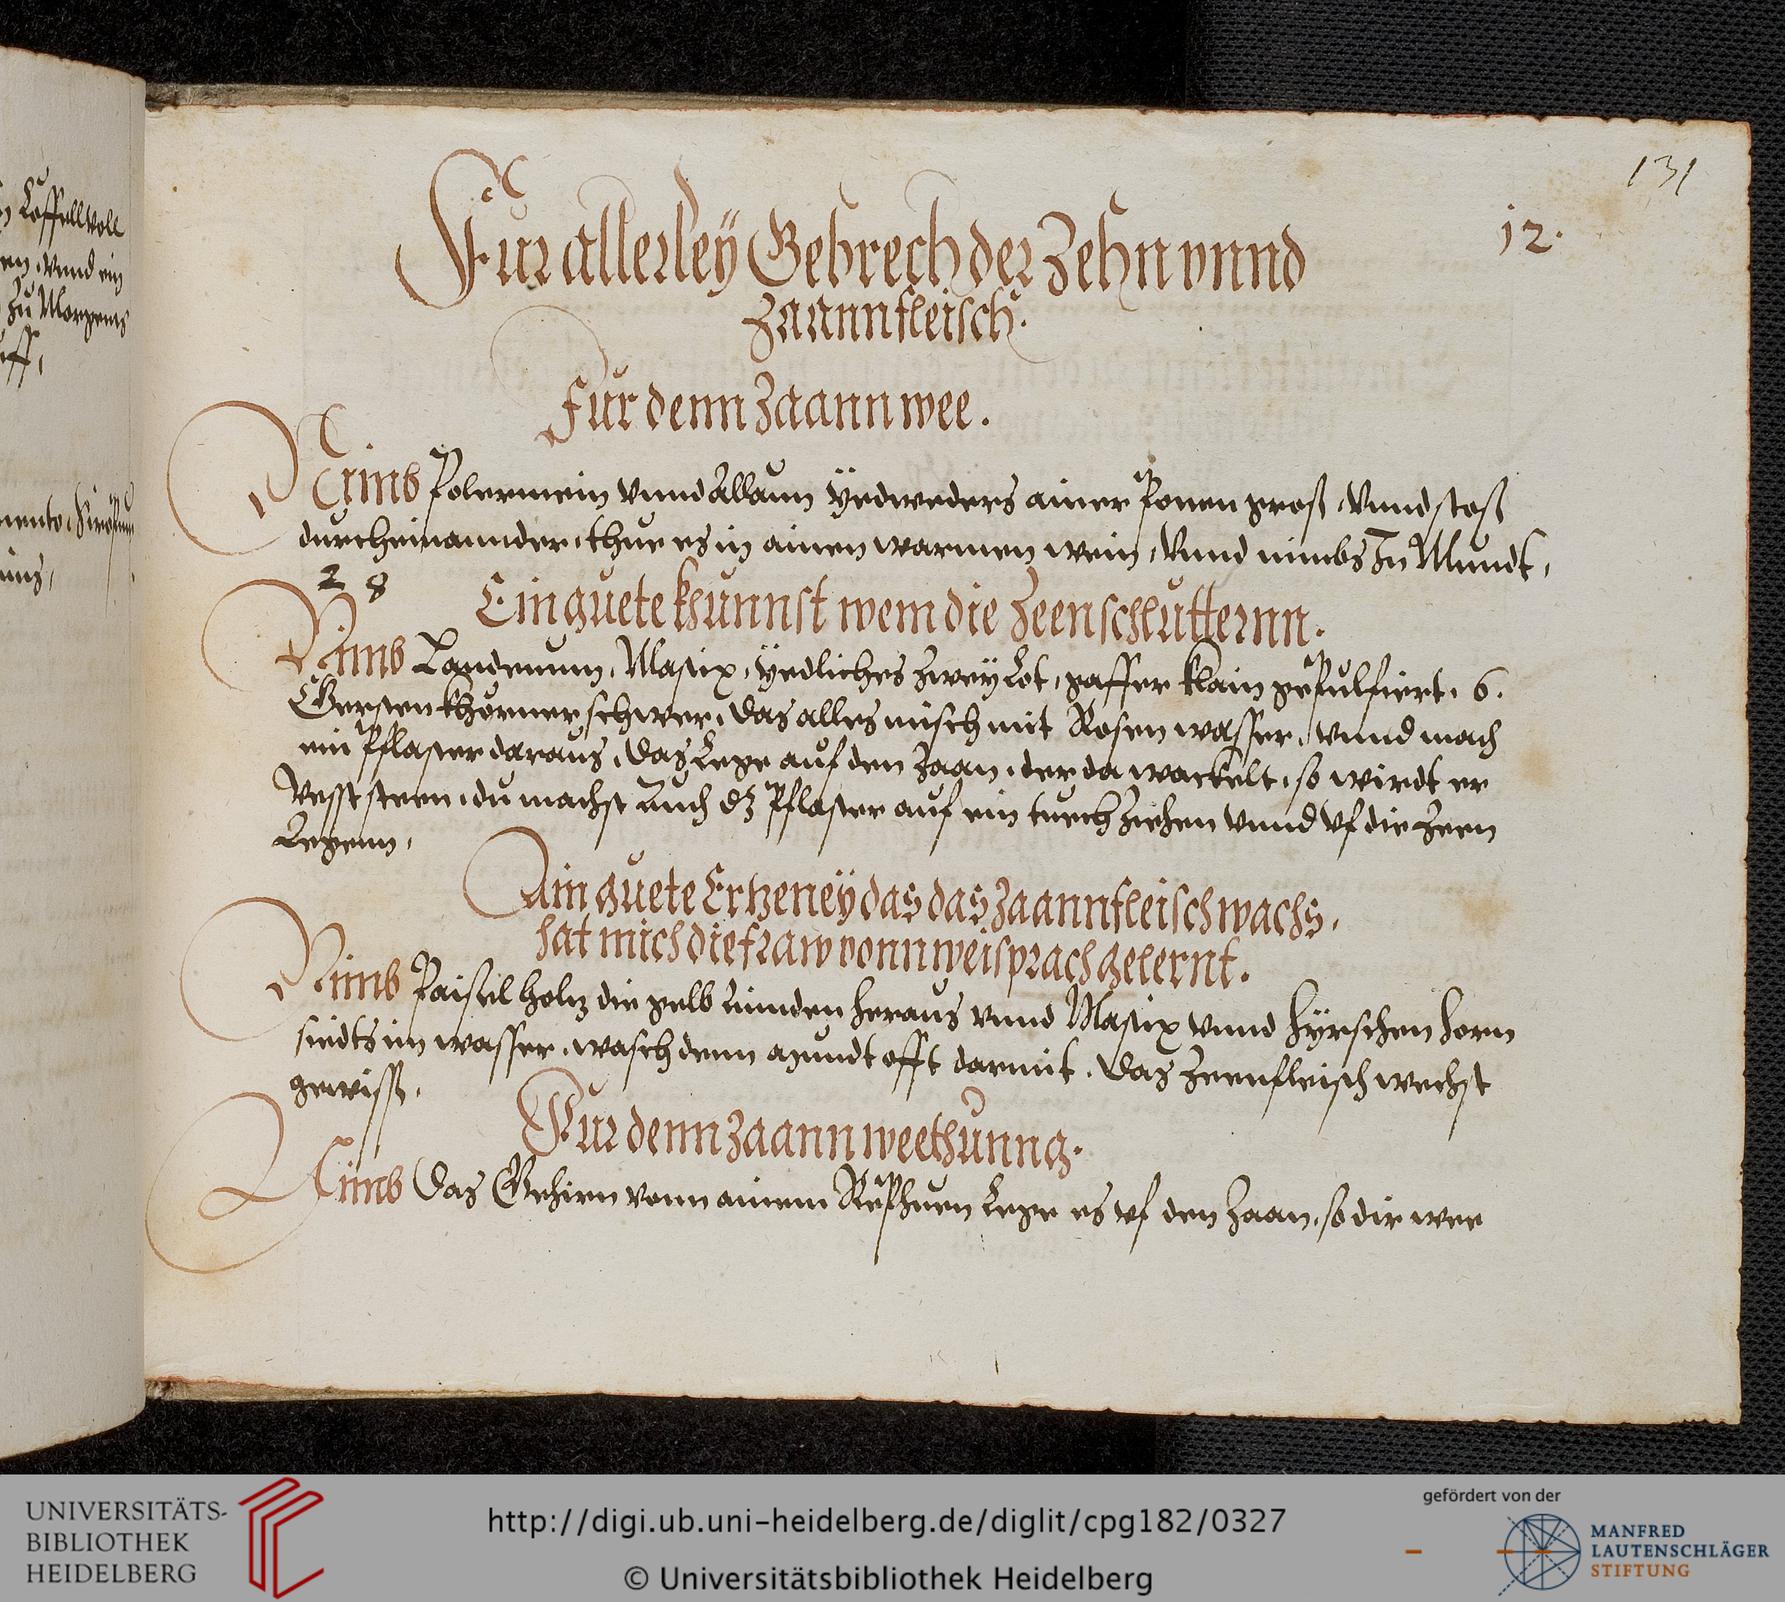 131
12.
Fur allerley Gebrech der Zehn vnnd
Zaannfleisch.
Fur denn Zaann wee.
Nimb Polermein vnnd Allaun yedweders ainer Ponen groß, vnnd stoß
durcheinannder, thue es in ainen warmen wein, vnnd nimbs Zu Mundt,
28
Ein guete khunnst wem die Zeen schlutternn.
Nimb Laudenum, Mastix, yedliches Zwey Lot, gaffer klain gepulfiert, 6.
Gersten khörner schwer, das alles misch mit Rosen wasser, vnnd mach
ein Pflaster daraus, das Lege auf den Zaan, der da wackelt, so wirdt er
Vesst steen, du machst auch dz Pflaster auf ein tuech Ziehen vnnd vf die Zeen
Legenn,
Ain guete Ertzeney das das Zaannfleisch wachs,
hat mich die fraw vonn weisprach gelernt.
Nimb Paissel holtz die gelb Rinnden heraus vnnd Mastix vnnd hyrschen horn
siedts in wasser, wasch denn mundt offt darmit, das Zeenfleisch wechst
gewiss,
Fur denn Zaann weethunng.
Nimb das Gehirn vonn ainem Rephuen Lege es vf den Zaan, so dir wee
Löffell voll
vnnd ein
Zu Morgens
UNIVERSITÄTS-
BIBLIOTHEK
HEIDELBERG
http://digi.ub.uni-heidelberg.de/diglit/cpg182/0327
© Universitätsbibliothek Heidelberg
gefördert von der
MANFRED
LAUTENSCHLÄGER
STIFTUNG